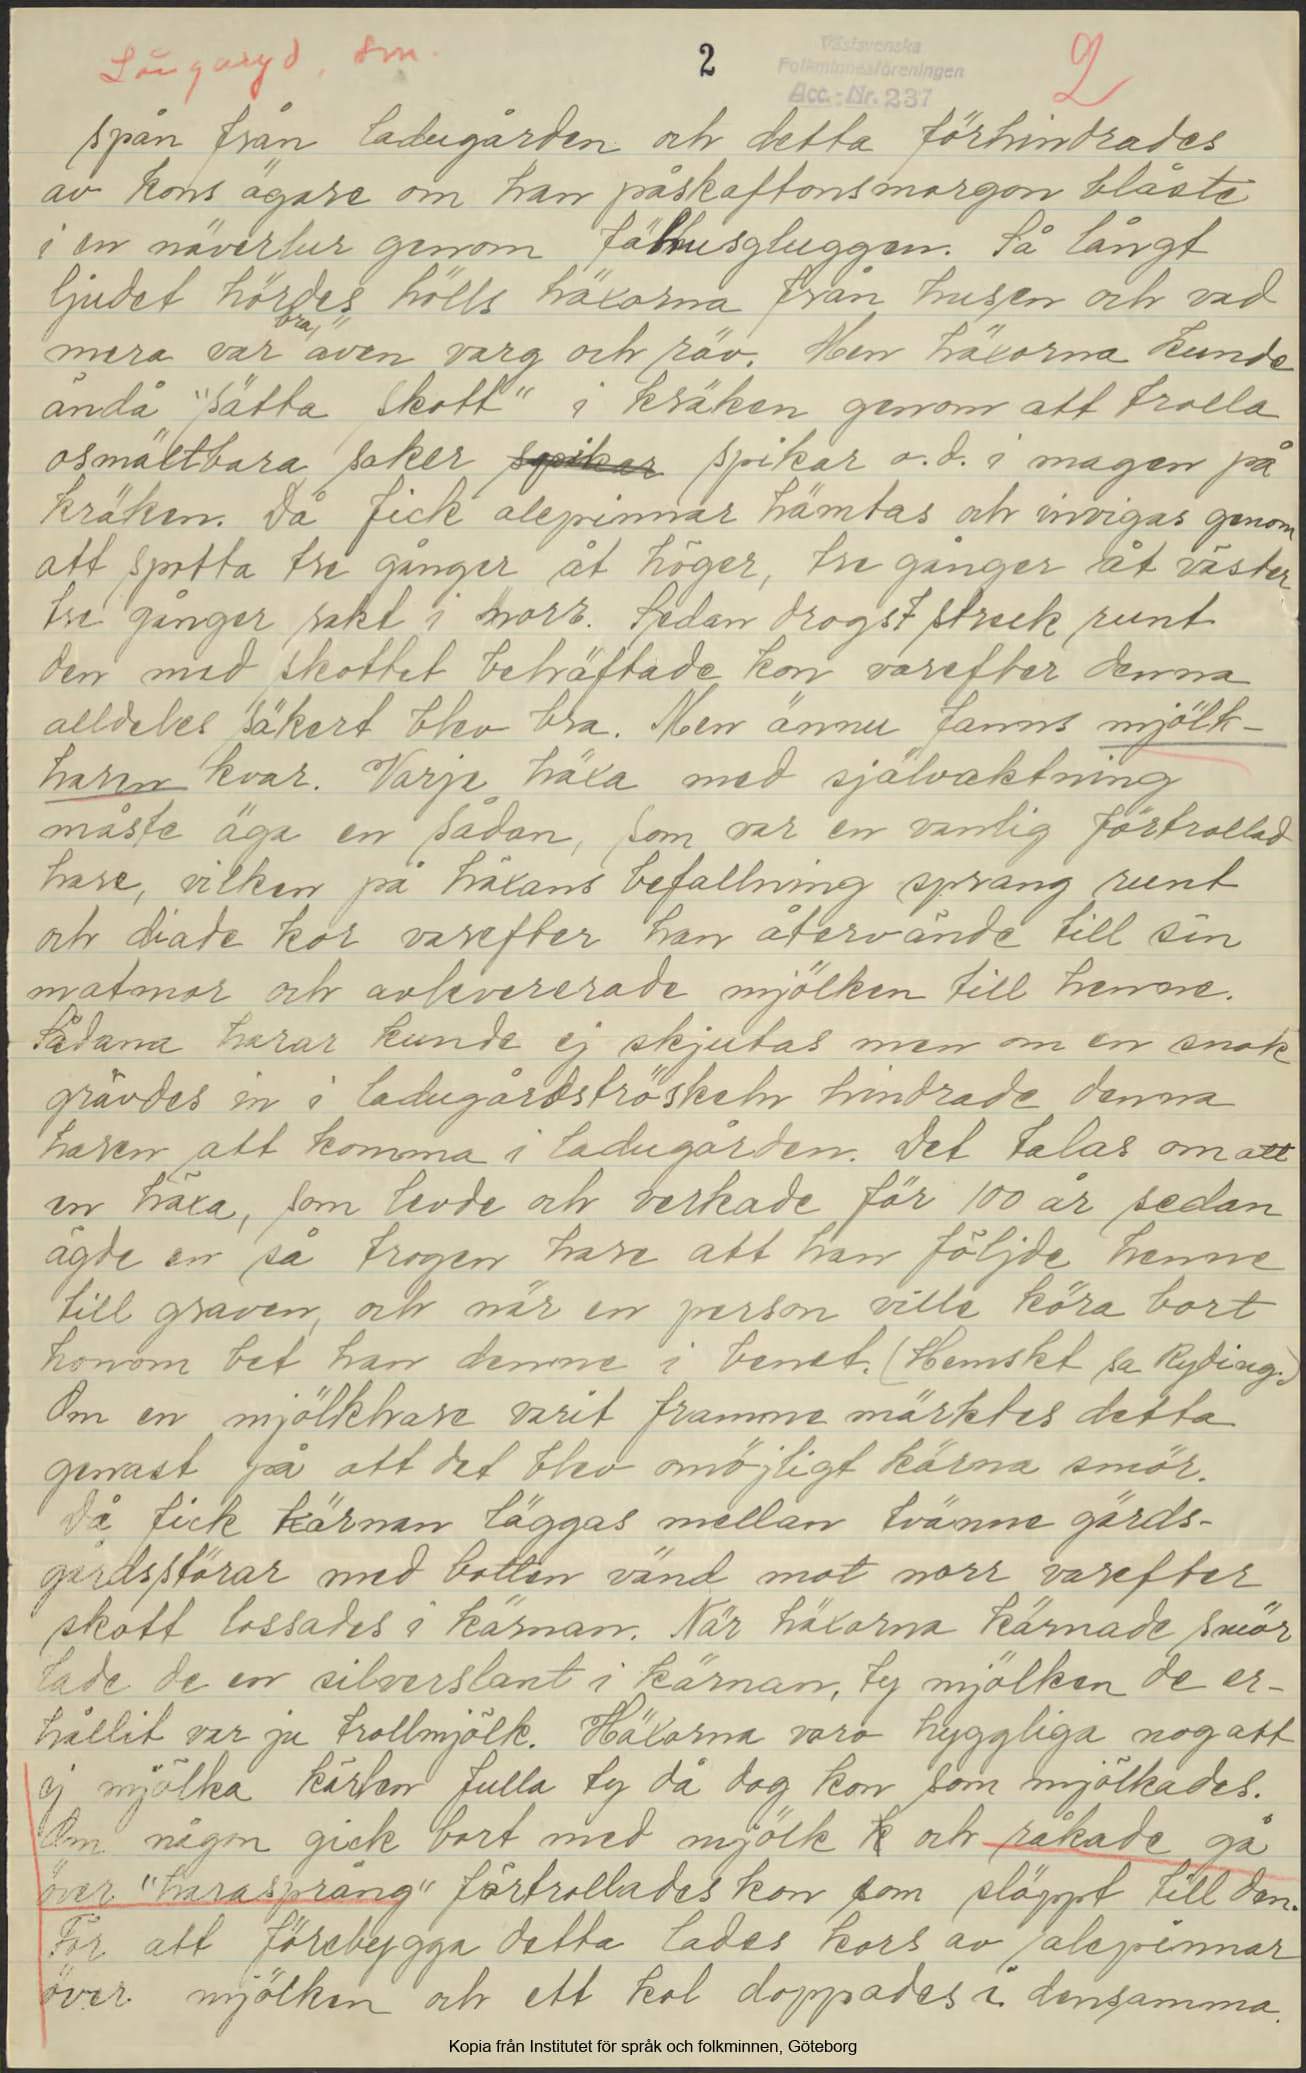 Långaryd, Sm.
2
Västsvenska
Folkminnesföreningen
Acc.-Nr. 237
2
spån från ladugården och detta förhindrades
av kons ägare om han påskaftonsmorgon blåste
i en näverlur genom fähusgluggen. Så långt
ljudet hördes hölls häxorna från husen och vad
mera var bra, även varg och räv. Men häxorna kunde
ändå "sätta skott" i kräken genom att trolla
osmältbara saker spikar spikar o.d. i magen på
kräken. Då fick alepinnar hämtas och invigas genom
att spotta tre gånger åt höger, tre gånger åt väster
tre gånger rakt i norr. Sedan drogs 7 streck runt
den med skottet behäftade kon varefter denna
alldeles säkert blev bra. Men ännu fanns mjölk-
haren kvar. Varje häxa med självaktning
måste äga en sådan, som var en vanlig förtrollad
hare, vilken på häxans befallning sprang runt
och diade kor varefter han återvände till sin
matmor och avlevererade mjölken till henne.
Sådana harar kunde ej skjutas men om en snok
grävdes in i ladugårdströskeln hindrade denna
haren att komma i ladugården. Det talas om att
en häxa, som levde och verkade för 100 år sedan
ägde en så trogen hare att han följde henne
till graven, och när en person ville köra bort
honom bet han denne i benet. (Hemskt sa Ryding.)
Om en mjölkhare varit framme märktes detta
genast på att det blev omöjligt kärna smör.
Då fick kärnan läggas mellan tvänne gärds-
gårdsstörar med botten vänd mot norr varefter
skott lossades i kärnan. När häxorna kärnade smör
lade de en silverslant i kärnan, ty mjölken de er-
hållit var ju trollmjölk. Häxorna voro hyggliga nog att
ej mjölka kärlen fulla ty då dog kon som mjölkades.
Om någon gick bort med mjölk k och råkade gå
över "harasprång" förtrollades kon som släppt till den.
För att förebygga detta lades kors av alepinnar
över mjölken och ett kol doppades i densamma.
Kopia från Institutet för språk och folkminnen, Göteborg